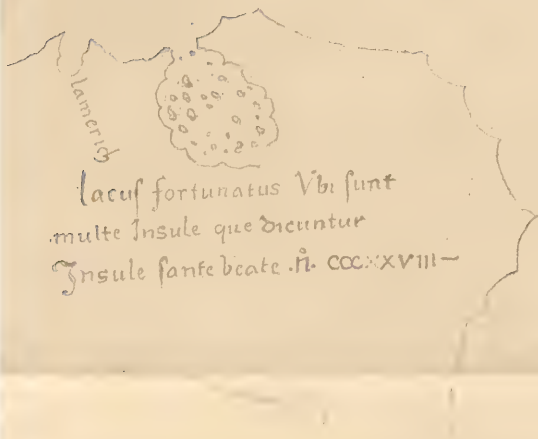 lamerich
lacus fortunatus Vbi sunt
multe Insule que dicuntur
Insule sante beate .n̊. CCCXXVIII